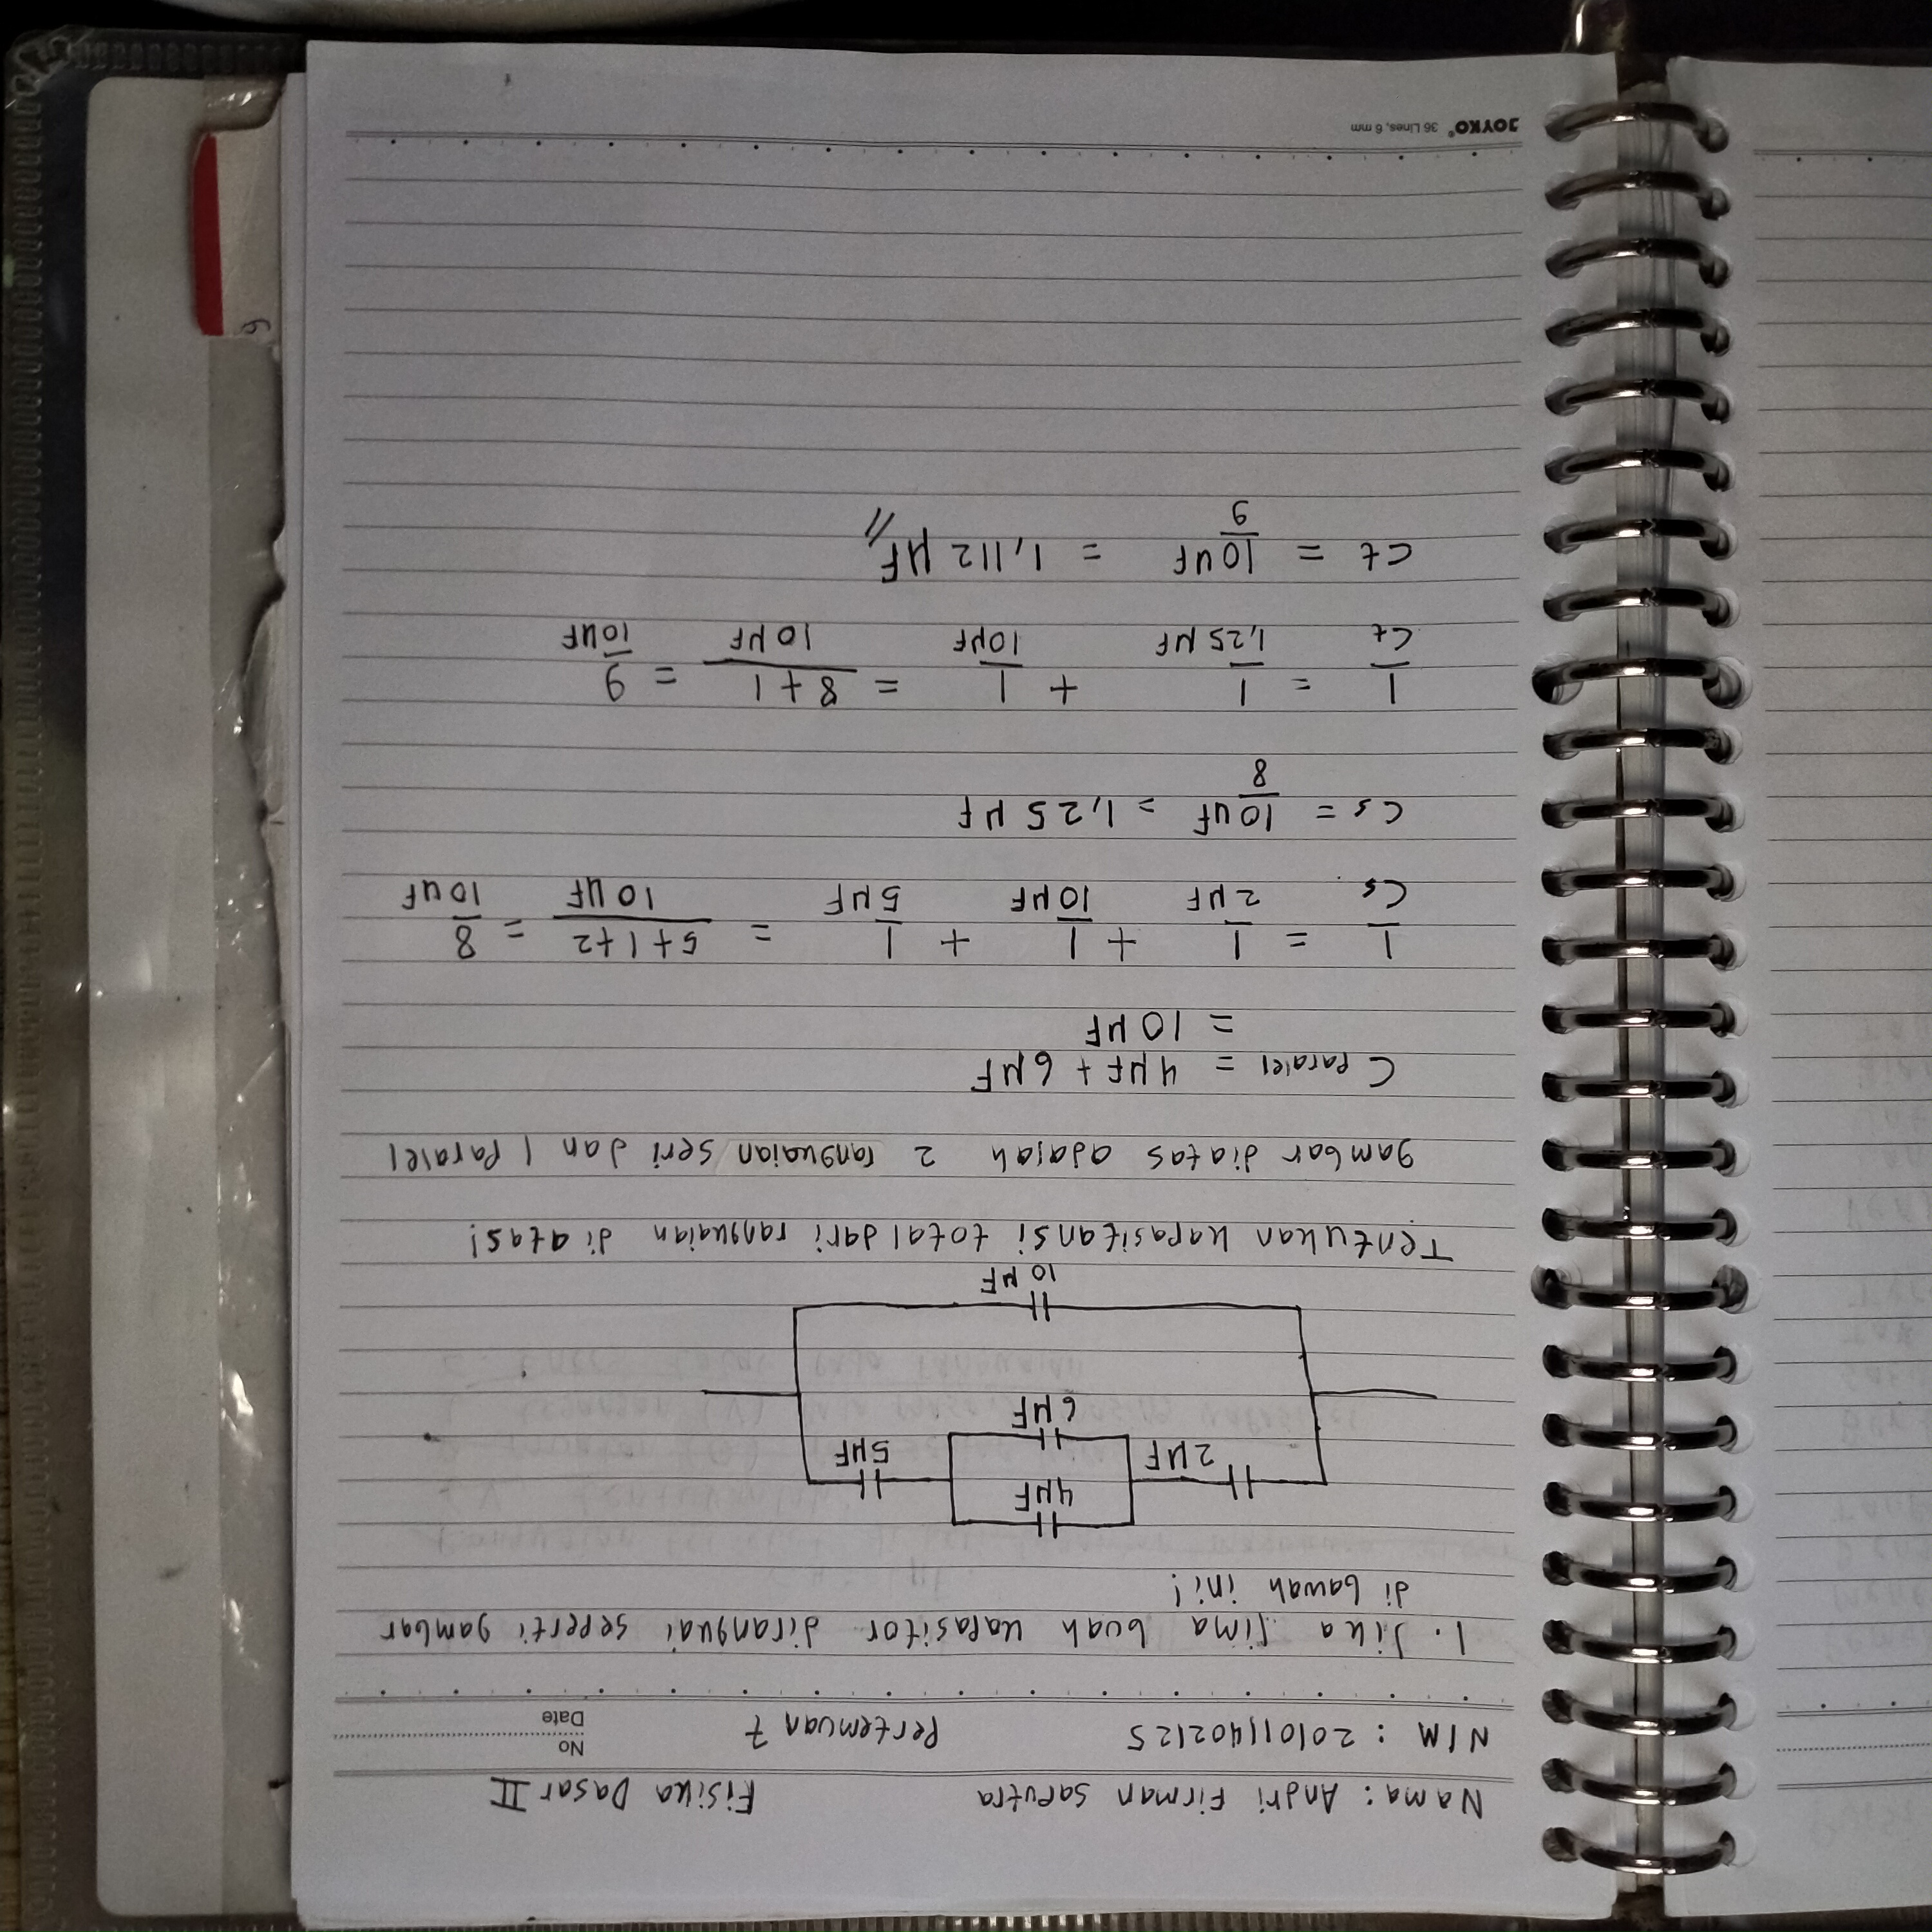 Nama : Andri Firman Saputra Fisika Dasar II
NIM : 201011402125 Pertemuan 7
No
Date
1. Jika lima buah kapasitor dirangkai seperti gambar
di bawah ini!
4µF
2µF 5µF
6µF
10 µF
Tentukan kapasitansi total dari rangkaian diatas!
gambar diatas adalah 2 rangkaian seri dan 1 Paralel
C Paralel = 4µF + 6µF
= 10µF
1/Cs = 1/2µF + 1/10µF + 1/5µF = 5+1+2/10µF = 8/10µF
Cs = 10µF/8 = 1,25 µF
1/Ct = 1/1,25 µF + 1/10µF = 8+1/10µF = 9/10µF
Ct = 10µF/9 = 1,112 µF //
JOYKO® 36 Lines, 6 mm